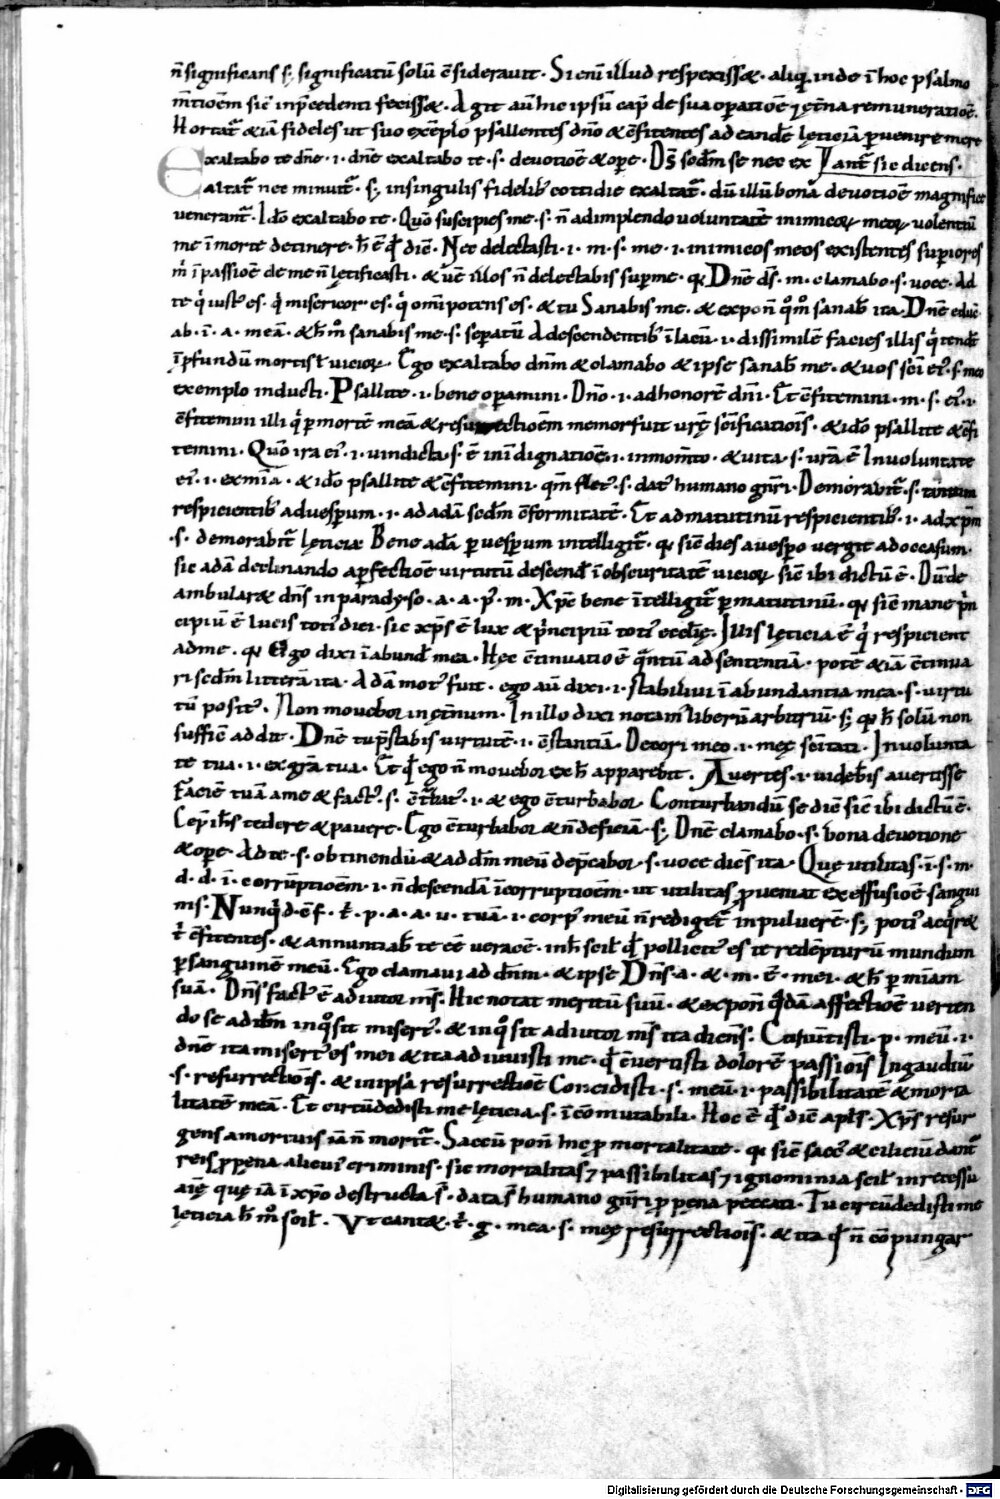 n̄ significans s; significatū solū c̄siderauit. Si eni illud respexisset. aliqͥ inde ī hoc psalmo
m̄tioēm sic̄ inp̄cedenti fecisset. Agit aū hic ipsū cap̄ de sua op̄atiōe ⁊ et̄na remuneratiōe.
Hortat̄ &iā fideles ut suo exēplo psallentes dn̄o & c̄fitentes ad eandē lęticiā ꝑuenire mere
Exaltabo te dn̄e .i. dn̄e exaltabo te .s. deuotiōe & oꝑe. Ds̄ scd̄m se nec ex Vant̄ sic dicens.
altat̄ nec minuit̄. s; insingulis fidelib; cottidie exaltat̄. dū illū bona deuotiōe magnifice
venerant̄. Ido exaltabo te. Quō suscipies me .s. n̄ adimplendo uoluntatē inimicoꝝ meoꝝ uolentiū
me ī morte detinere. h̄ ē qd̄ dic̄. Nec delectasti .i. m .s. me .i. inimicos meos existentes suꝑiores
m̄ ī passiōe de me n̄ lętificasti. & uē illos n̄ delectabis suꝑ me. qꝛ Dn̄e ds̄. m. clamabo .s. uoce. Ad
te qͥ iust; es. qͥ misericor. es. qͥ om̄ipotens es. & tu Sanabis me. & expon̄ qͦmͦ sanab̄ ita. Dn̄e educ̄
ab. ī. a. meā. & h̄ mͦ sanabis me .s. seꝑatū A descendentib; ī lacū .i. dissimilē facies illis qͥ tendē
īꝓfundū mortis ł uicioꝝ. Ego exaltabo dn̄m & clamabo & ipse sanab̄ me. & uos sc̄i ei;. s. meo
exemplo inducti. Psallite .i. bene oꝑamini. Dn̄o .i. ad honorē dn̄i. Et c̄fitemini .m. s. ei; .i.
c̄fitemini illi qͥ ꝑ mortē meā & resurrectioēm memor fuit urę sc̄ificatiōis. & ido psallite & c̄fi
temini. Quō ira ei; .i. uindicta .s. ē in īdignatiōe .i. in mom̄to. & uita .s. ur̄a ē In uoluntate
ei; .i. ex mīa. & ido psallite & c̄fitemini. qm̄ flet;. s. dat; humano gn̄ri. Demorabit̄ .s. tantum
respicientib; ad uesꝑum .i. ad adā scd̄m c̄formitatē. Et ad matutinū respicientib; .i. ad xp̄m
.s. demorabit̄ lęticia. Bene adā ꝑ uesꝑum intelligit̄. qꝛ sic̄ dies a uesꝑo uergit ad occasum.
sic adā declinando a ꝑfectiōe uirtutū descend̄ ī obscuritatē uicioꝝ sic̄ ibi dictū ē. Dū de
ambularet dn̄s in paradyso. a. a. p̄. m. Xpc̄ bene ītelligit̄ ꝑ matutinū. qꝛ sic̄ mane pͥn
cipiū ē lucis toti; diei. sic xp̄s ē lux & pͥncipiū toti; eccl̄ię. Illis lęticia ē qͥ respicient
ad me. qꝛ Ego dixi ī abund̄ mea. Hec c̄tinuatio ē qͣntū ad sententiā. potē &iā c̄tinua
ri scd̄m litterā ita. Adā mot; fuit. ego aū dixi .i. stabiliui ī abundantia mea .s. uirtu
tū posit;. Non mouebor in et̄num. In illo dixi notam; liberū arbitriū. s; qꝛ h̄ solū non
suffic̄ addit. Dn̄e tu p̄stabis uirtutē .i. c̄stantiā. Decori meo .i. męę sc̄itati. In uolunta
te tua .i. ex gr̄a tua. Et qd̄ ego n̄ mouebor ex h̄ apparebit. Auertes .i. uideb̄is auertisse
Faciē tuā a me & fact; .s. c̄t̄bat; .i. & ego c̄turbabor. Conturbandū se dic̄ sic̄ ibi dictū ē.
Cep̄ ih̄s tedere & pauere. Ego c̄turbabor & n̄ deficiā. s; Dn̄e clamabo .s. bona deuotione
& oꝑe. Ad te .s. obtinendū & ad dm̄ meū dep̄cabor .s. uoce dic̄s ita. Que utilitas .ī. s. m.
d. d. ī. corrūptioēm .i. n̄ descendā ī corruptioēm. ut utilitas ꝓueniat ex effusiōe sangui
nis. Nunqͥd. c̄f. t̄. p. a. a. u. tuā .i. corp; meū n̄ rediget̄ in puluerē. s; poti; acqͥret
t̄ c̄fitentes. & annuntiab̄ te eē ueracē. in h̄ scil̄ qd̄ pollicit; es te redēpturū mundum
ꝑ sanguinē meū. Ego clamaui ad dn̄m. & ipse Dn̄s. a. & .m. ē. mei. & h̄ ꝑ m̄iam
suā. Dn̄s fact; ē adiutor m̄s. Hic notat meritū suū. & expon̄ qͣdā affectiōe uerten
do se ad dm̄ in qͦ sit misert;. & in qͦ sit adiutor m̄s ita dicens. Cōuūtisti. p. meū .i.
dn̄e ita misert; es mei & ita adiuuisti me. qd̄ c̄uertisti dolorē passiōis In gaudiū
.s. resurrectiōis. & in ipsa resurrectiōe Concidisti .s. meū .i. passibilitatē & morta
litatē meā. Et circūdedisti me lęticia .s. īcōmutabili. Hoc ē qd̄ dic̄ apl̄s. Xp̄s resur
gens a mortuis iā n̄ morit̄. Saccū pon̄ hic ꝓ mortalitate. qꝛ sic̄ sacc; & ciliciū dant̄
reis ꝓ pena alicui; criminis. sic mortalitas ⁊ passibilitas ⁊ ignominia scil̄ in recessu
aīę que iā ī xp̄o destructa s̄. data s̄ humano gn̄ri ꝓ pena peccati. Tu circūdedisti me
lęticia h̄ mͦ scil̄. Vt cantet. t̄. g. mea .s. męę resurrectiōis. & ita qd̄ n̄ cōpungar